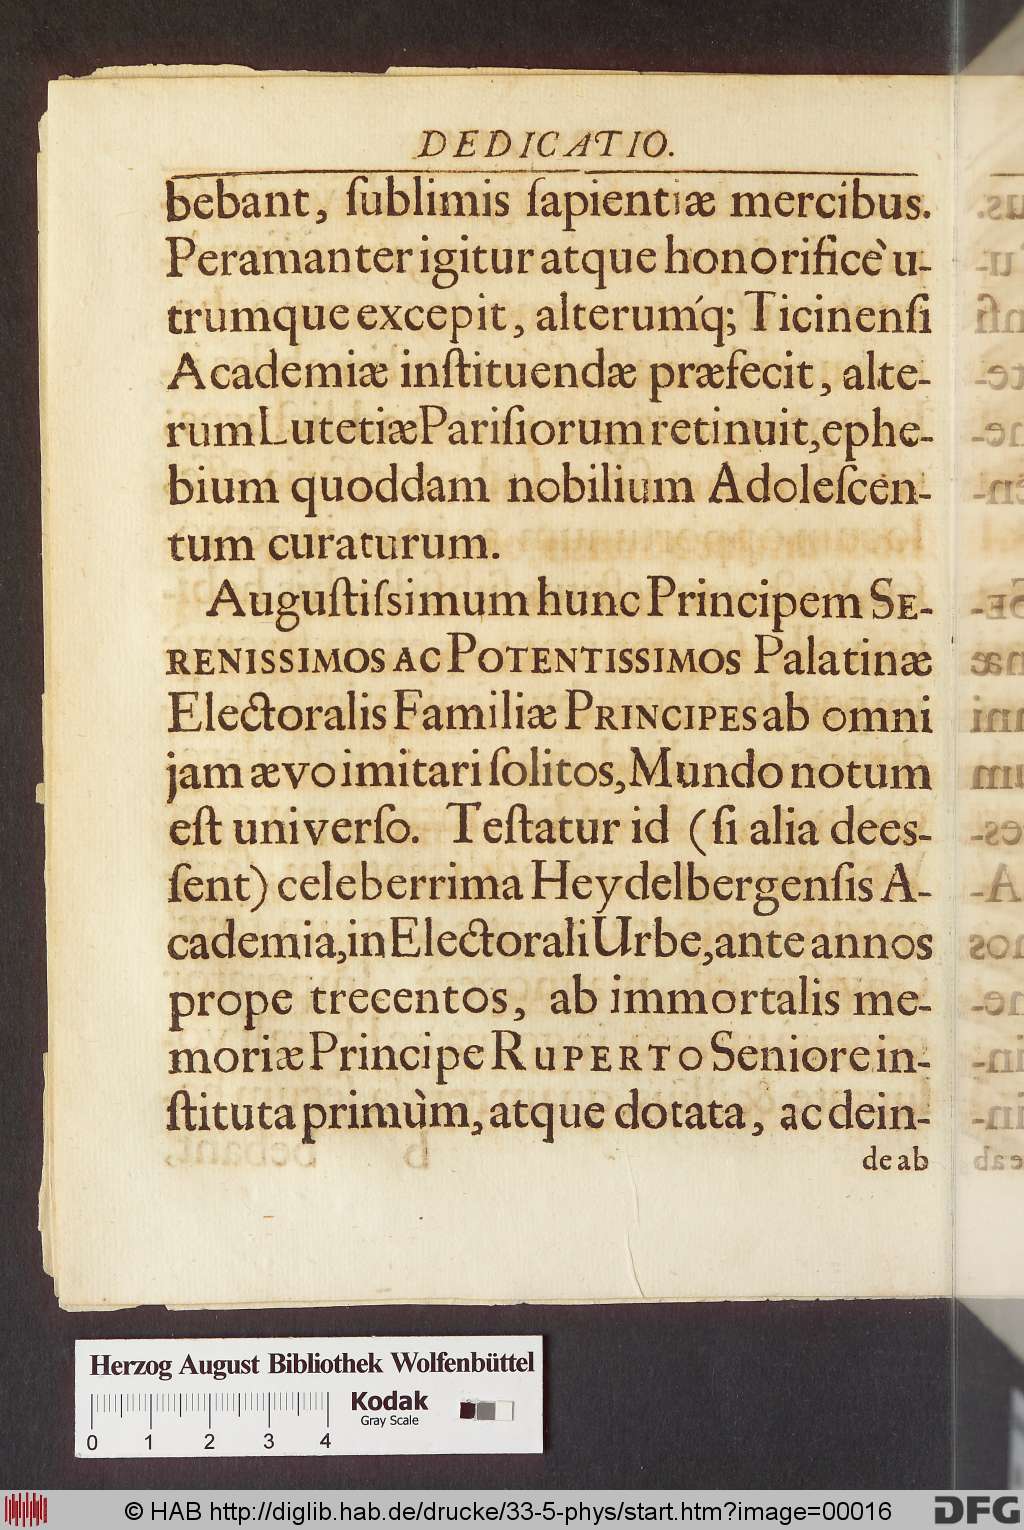 DEDICATIO.
bebant, ſublimis ſapientiæ mercibus.
Peramanter igitur atque honorificè u-
trumque excepit, alterum´q; Ticinenſi
Academiæ inſtituendæ præfecit, alte-
rum Lutetiæ Pariſiorum retinuit, ephe-
bium quoddam nobilium Adoleſcen-
tum curaturum.
Auguſtiſsimum hunc Principem SE-
RENISSIMOS AC POTENTISSIMOS Palatinæ
Electoralis Familiæ PRINCIPES ab omni
jam ævo imitari ſolitos, Mundo notum
eſt univerſo. Teſtatur id (ſi alia dees-
ſent) celeberrima Heydelbergenſis A-
cademia, in Electorali Urbe, ante annos
prope trecentos, ab immortalis me-
moriæ Principe RUPERTO Seniore in-
ſtituta primùm, atque dotata, ac dein-
de ab
Herzog August Bibliothek Wolfenbüttel
Kodak
Gray Scale
0 1 2 3 4
© HAB http://diglib.hab.de/drucke/33-5-phys/start.htm?image=00016
DFG